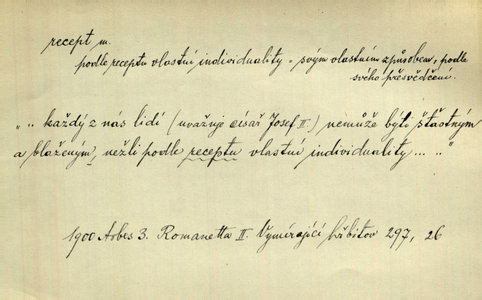 recept m.
podle receptu vlastní individuality = svým vlastním způsobem, podle
svého přesvědčení.
„.. každý z nás lidí (uvažuje císař Josef II.) nemůže býti šťastným
a blaženým, nežli podle receptu vlastní individuality ... .."
1900 Arbes 3. Romanetta II. Vymírající hřbitov 297, 26